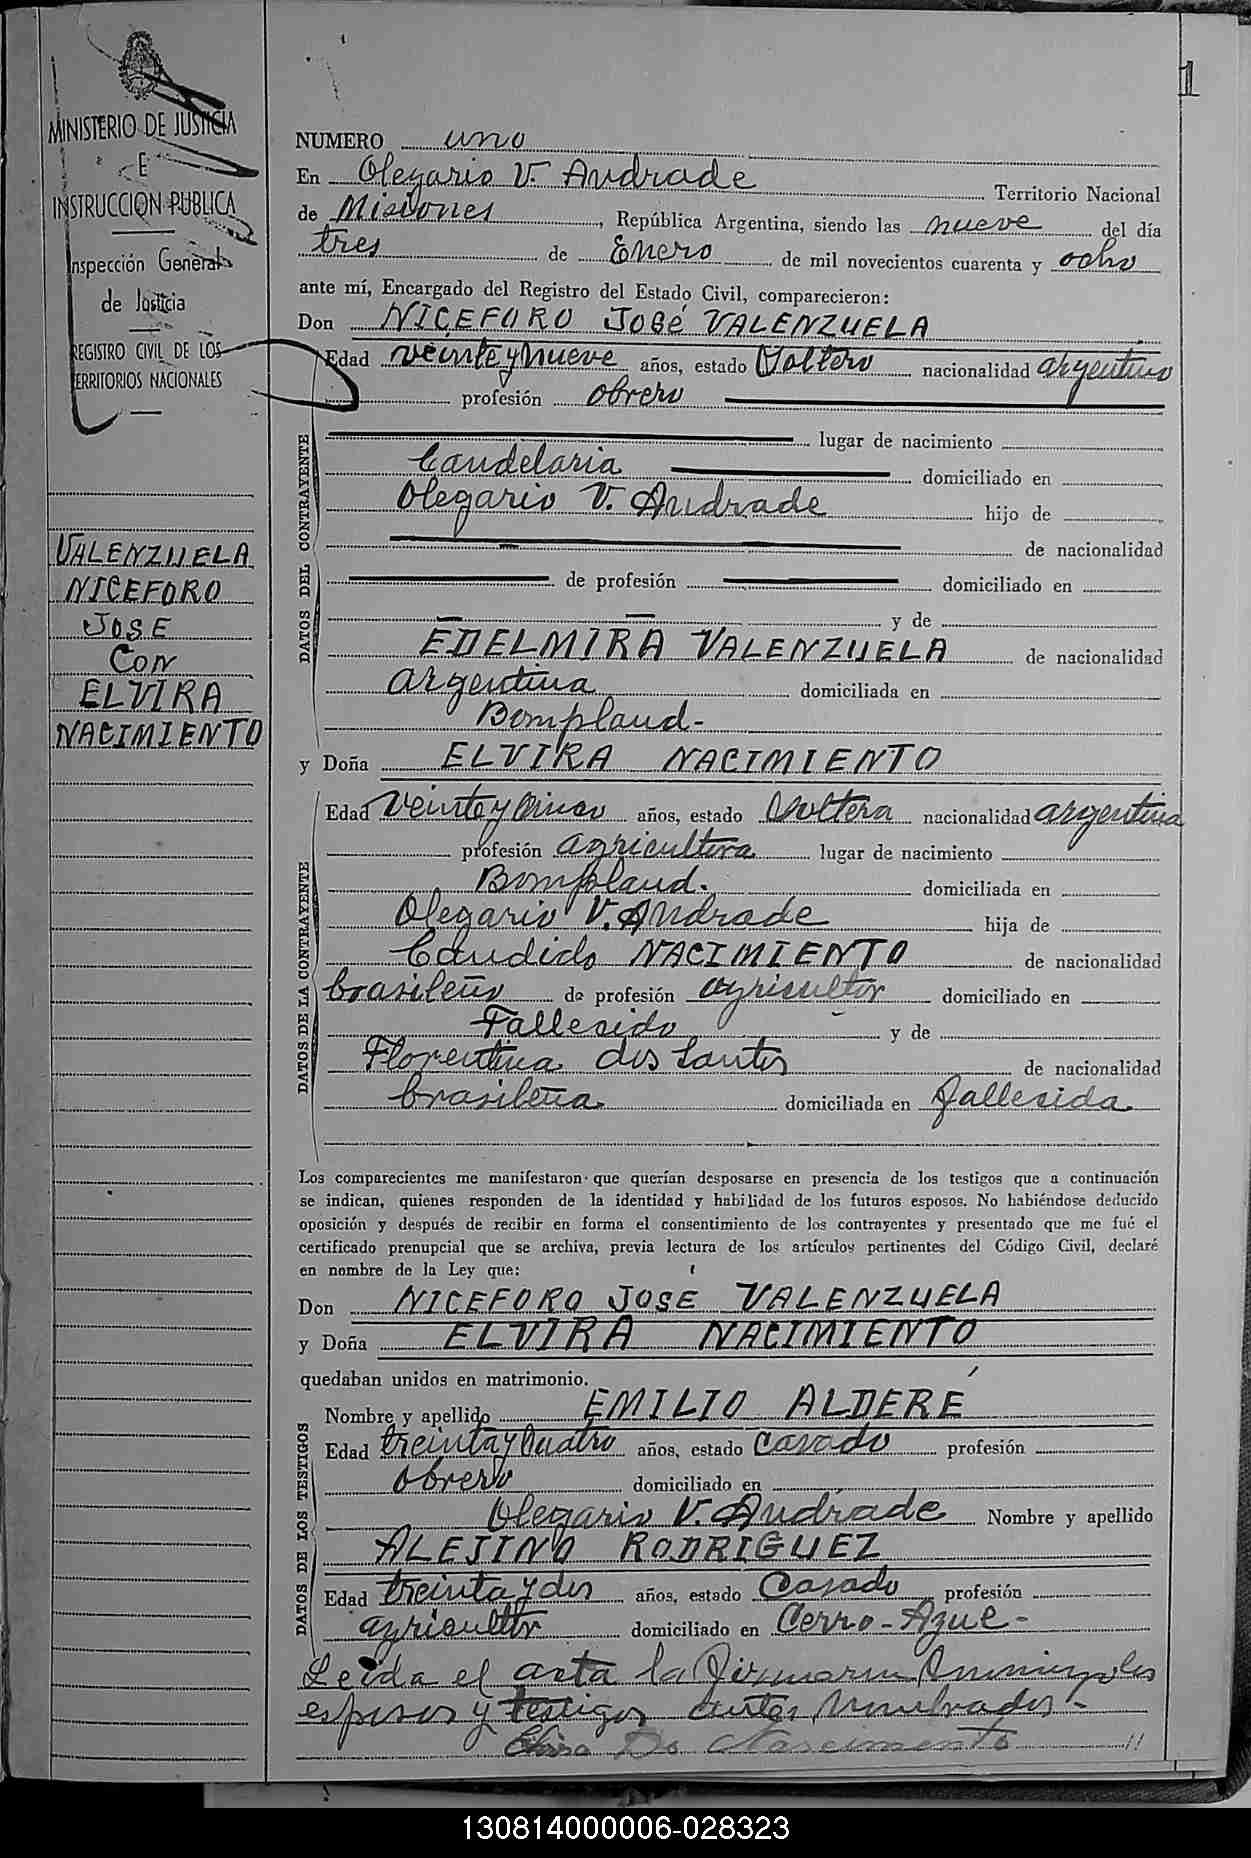 1
MINISTERIO DE JUSTICIA
E
INSTRUCCION PUBLICA
Inspección General
de Justicia
REGISTRO CIVIL DE LOS
TERRITORIOS NACIONALES
VALENZUELA
NICEFORO
JOSE
CON
ELVIRA
NACIMIENTO
NUMERO uno
En Olegario V. Andrade Territorio Nacional
de Misiones, República Argentina, siendo las nueve del día
tres de Enero de mil novecientos cuarenta y ocho
ante mí, Encargado del Registro del Estado Civil, comparecieron:
Don NICEFORO JOSÉ VALENZUELA
DATOS DEL CONTRAYENTE
Edad veinte y nueve años, estado Soltero nacionalidad argentino
profesión obrero
lugar de nacimiento
Candelaria domiciliado en
Olegario V. Andrade hijo de
de nacionalidad
de profesión domiciliado en
y de
EDELMIRA VALENZUELA de nacionalidad
argentina domiciliada en
Bompland-
y Doña ELVIRA NACIMIENTO
DATOS DE LA CONTRAYENTE
Edad veinte y cinco años, estado Soltera nacionalidad argentina
profesión agricultora lugar de nacimiento
Bompland. domiciliada en
Olegario V. Andrade hija de
Candido NACIMIENTO de nacionalidad
brasileño de profesión agricultor domiciliado en
Fallecido y de
Florentina dos Santos de nacionalidad
brasileña domiciliada en fallecida
Los comparecientes me manifestaron que querían desposarse en presencia de los testigos que a continuación
se indican, quienes responden de la identidad y habilidad de los futuros esposos. No habiéndose deducido
oposición y después de recibir en forma el consentimiento de los contrayentes y presentado que me fué el
certificado prenupcial que se archiva, previa lectura de los artículos pertinentes del Código Civil, declaré
en nombre de la Ley que:
Don NICEFORO JOSÉ VALENZUELA
y Doña ELVIRA NACIMIENTO
quedaban unidos en matrimonio.
DATOS DE LOS TESTIGOS
Nombre y apellido EMILIO ALDERÉ
Edad treinta y cuatro años, estado Casado profesión
obrero domiciliado en
Olegario V. Andrade Nombre y apellido
ALEJINO RODRIGUEZ
Edad treinta y dos años, estado Casado profesión
agricultor domiciliado en Cerro-Azul-
Leida el acta la firmaron los
esposos y testigos antes nombrados-
Do Nascimento //
130814000006-028323